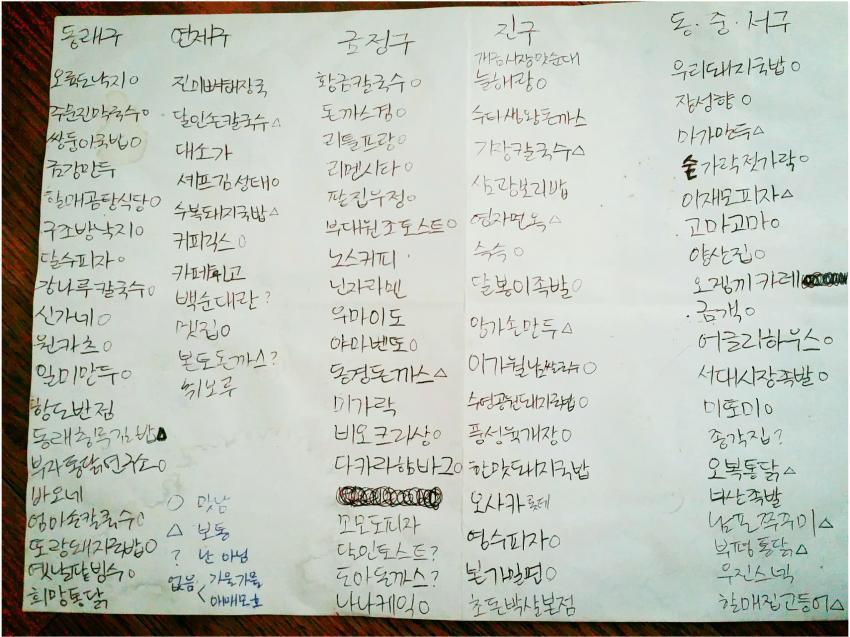 동래구
오륙도낙지○
주문진막국수○
쌍둥이국밥○
금강만두
할매곰탕식당○
구조방낙지○
달수피자○
강나루칼국수○
신가네○
원카츠○
일미만두○
향도반점
동래허묵김밥▲
부자통닭연구소○
바오네
엄마손칼국수○
또랑돼지국밥○
옛날팥빙수○
희망통닭
연제구
진미뼈해장국
달인손칼국수△
대소가
셰프김성태○
수복돼지국밥△
커피긱스○
카페위고
백순대란?
멧집○
본도돈까스?
취보루
○ 맛남
△ 보통
? 난 아님
없음 < 가물가물
애매모호
금정구
황금칼국수○
돈까스경○
리틀프랑○
리멘시타○
팥진부정○
부대원조토스트○
노스커피
닌자라멘
우마이도
야마벤또○
동경돈까스△
미가락
비오크리상○
다카라함바그○
꼬모도피자
달인토스트?
도아돈까스?
나나케익○
진구
개금시장맛순대
늘해랑○
수다생왕돈까스
기장칼국수△
삼광보리밥
연자면옥△
쓱쓱○
달봉이족발○
양가손만두△
이가월남쌀국수○
수영공원돼지국밥○
풍성육개장○
한맛돼지국밥
오사카
영수피자○
본가밀면○
초돈박살본점
동·중·서구
우리돼지국밥○
장성향○
마가만두△
숟가락젓가락○
이재모피자△
고마고마○
양산집○
오겡끼카레
금객○
어클리하우스○
서대시장족발○
미또미○
종각집?
오복통닭△
부산족발
남포쭈꾸미△
부평통닭△
우진스넥
할매집고등어△